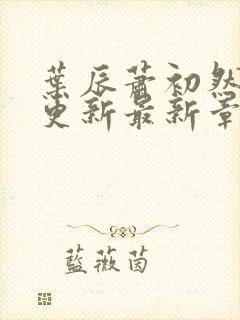 葉辰蕭初然
更新最新章
藍薇茵